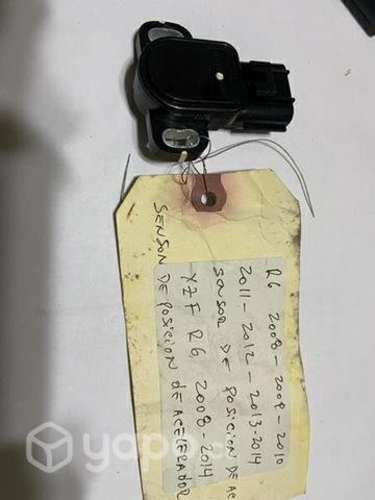 R6 2008-2009-2010
2011-2012-2013-2014
SENSOR DE POSICION DE AC
YZF R6 2008-2014
SENSOR DE POSICION DE ACELERADOR
yapo.cl